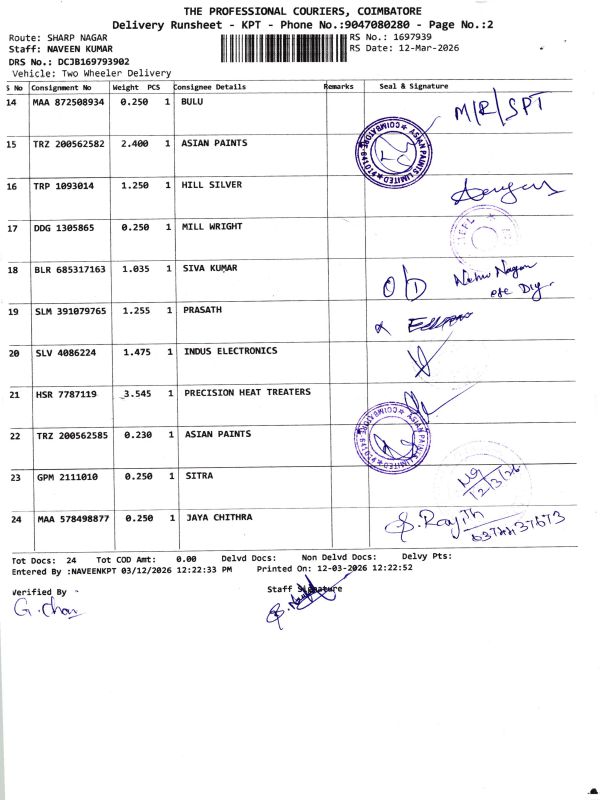 THE PROFESSIONAL COURIERS, COIMBATORE
Delivery Runsheet - KPT - Phone No.:9047080280 - Page No.:2
Route: SHARP NAGAR
RS No.: 1697939
Staff: NAVEEN KUMAR
RS Date: 12-Mar-2026
DRS No.: DCJB169793902
Vehicle: Two Wheeler Delivery
S No Consignment No Weight PCS Consignee Details Remarks Seal & Signature
14 MAA 872508934 0.250 1 BULU M/R/SPT
15 TRZ 200562582 2.400 1 ASIAN PAINTS
ASIAN PAINTS LIMITED COIMBATORE-641
16 TRP 1093014 1.250 1 HILL SILVER
17 DDG 1305865 0.250 1 MILL WRIGHT
18 BLR 685317163 1.035 1 SIVA KUMAR O/D Nehru Nagar
19 SLM 391079765 1.255 1 PRASATH
20 SLV 4086224 1.475 1 INDUS ELECTRONICS
21 HSR 7787119 3.545 1 PRECISION HEAT TREATERS
22 TRZ 200562585 0.230 1 ASIAN PAINTS
ASIAN PAINTS LIMITED COIMBATORE-641
23 GPM 2111010 0.250 1 SITRA
12/3/26
24 MAA 578498877 0.250 1 JAYA CHITHRA S. Rajith
Tot Docs: 24 Tot COD Amt: 0.00 Delvd Docs: Non Delvd Docs: Delvy Pts:
Entered By :NAVEENKPT 03/12/2026 12:22:33 PM Printed On: 12-03-2026 12:22:52
Verified By
Staff Signature